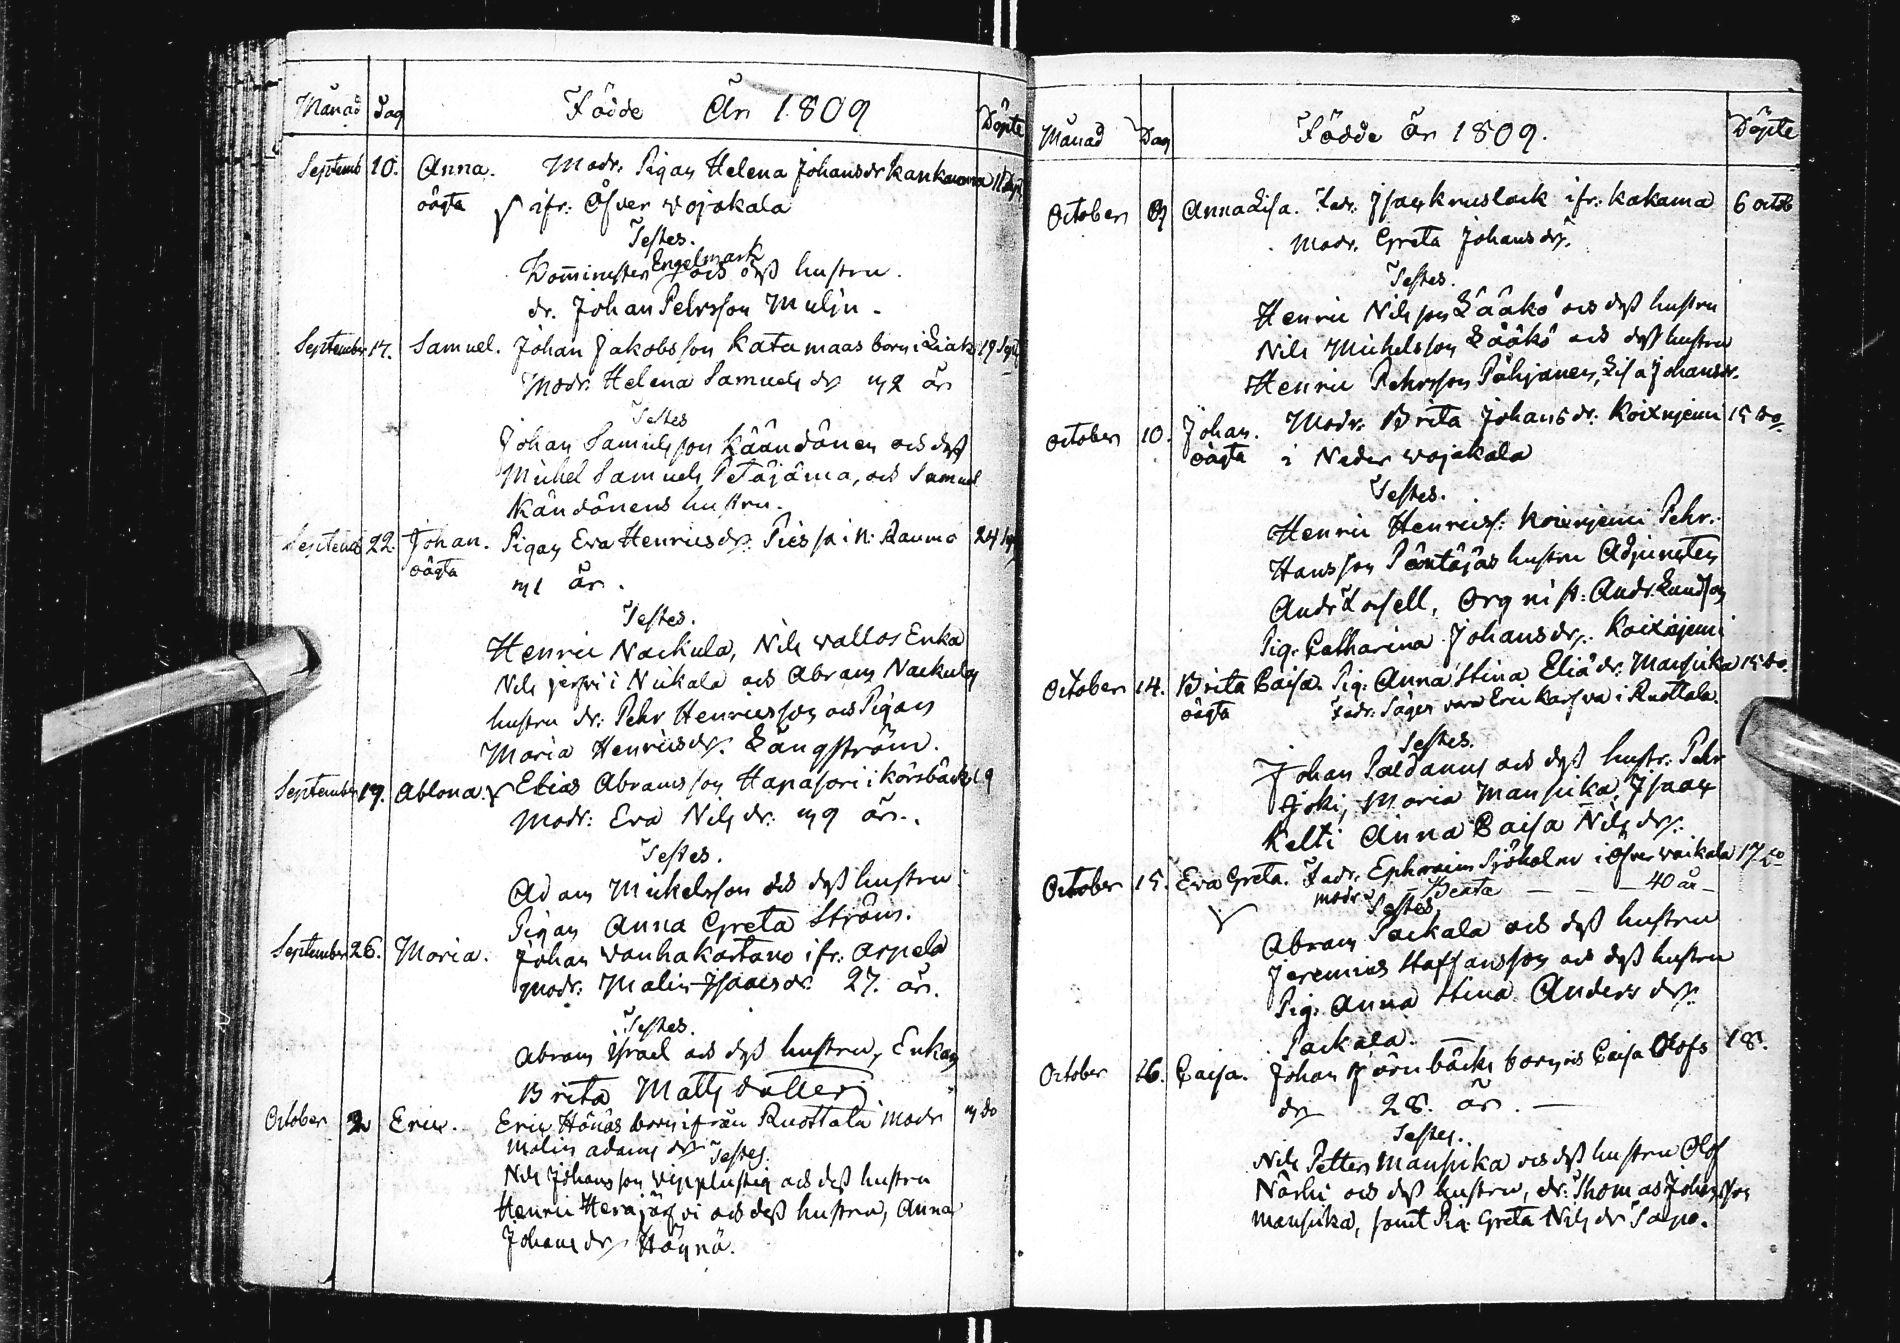 Månad Dag Födde År 1809 Döpte
Septemb 10. Anna. Modr. Pigan Helena Johansdr Kankaanra 11 Sept
oägta ifr: Öfver Wojakala
Testes.
Engelmark
Komminister och dess hustru.
dr. Johan Pehrsson Mulin.
September 17. Samuel. Johan Jakobsson Katamaas born i Liak 19 Sept
Modr. Helena Samuels dr 42 år
Testes
Johan Samuelsson Käändönen och dess
Michel Samuels Petäjäma, och Samuel
Kändönens hustru.
Septemb 22. Johan. Pigan Eva Henricsdr. Piessa i N: Raumo 24
oägta 41 år.
Testes.
Henric Nackula, Nils Wallos Enka
Nils jerfvi i Nickala och Abram Nackulas
hustru dr: Pehr Henricsson och Pigan
Maria Henricsdr. Långström.
September 19. Ablona. Elias Abramsson Hapasari i Körsbäck 19
Modr: Eva Nils dr: 49 år.
Testes.
Adam Mickelsson och dess hustru
Pigan Anna Greta Ström.
September 26. Maria. Johan Wanhakartano ifr. Arpela
Modr: Malin Isaacsdr. 27. år.
Testes.
Abram Israel och dess hustru, Enkan
Brita Matts dotter
October 2 Eric. Eric Hönäs born ifrån Ruottala Modr 4 do
Malin Adams dr Testes
Nils Johansson Wipplustig och dess hustru
Henric Herajärfvi och dess hustru, Anna
Johans dr Höynä.
Månad Dag Födde År 1809. Döpte
October Anna Lisa. Fadr. Isac Kruslock ifr: Kakama 6 octob
Modr. Greta Johansdr.
Testes.
Henric Nilsson Lääkö och dess hustru
Nils Michelsson Lääkö och dess hustru
Henric Pehrsson Pohjanen, Lisa Johansdr.
October 10. Johan. Modr. Brita Johansdr. Koixnjemi 15 do
oägta i Neder Wojakala
Testes.
Henric Henricss: Koixnjemi Pehr
Hansson Päntäjäs hustru Adjuncten
Andr Forsell, Organist: Andr. Lundson
Pig. Catharina Johansdr. Koixnjemi
October 14. Brita Caisa. Pig: Anna Stina Eliädr: Mansikka 15 do.
oägta Fadr. Säges vara Eric Karsva i Ruottala.
Testes.
Johan Paldanus och dess hustr. Pehr
Ajoki, Maria Mansikka, Isaac
Kelti Anna Caisa Nils dr.
October 15. Eva Greta. Fadr. Ephraim Sjöholm i Öfver Woikala 17. do
modr. — Beata — — — 40 år —
Testes
Abram Packala och dess hustru
Jeremias Staffansson och dess hustru
Pig. Anna Stina Anders dr.
Packala. —
October 16. Caisa. Johan Björnbäcks born, Caisa Olofs 18.
dr 28. år. —
Testes.
Nils Petter Mansikka och dess hustru Olof
Närhi och dess hustru, dr: Thomas Johansson
Mansikka, samt Pig. Greta Nils dr Sarpo.